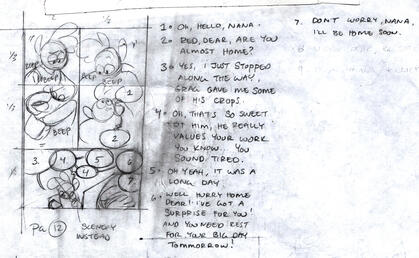 1/2
BEEP
BEEP
BEEP
BEEP
1
1/2
BEEP
2
3.
4
5
6
4
7
Pg 12
SCENERY
INSTEAD
1. OH, HELLO, NANA.
2. RED, DEAR, ARE YOU
ALMOST HOME?
3. YES, I JUST STOPPED
ALONG THE WAY.
GRAG GAVE ME SOME
OF HIS CROPS.
4. OH, THAT'S SO SWEET
OF HIM, HE REALLY
VALUES YOUR WORK
YOU KNOW... YOU
SOUND TIRED.
5. OH YEAH, IT WAS A
LONG DAY
6. WELL HURRY HOME
DEAR! I'VE GOT A
SURPRISE FOR YOU!
AND YOU NEED REST
FOR YOUR BIG DAY
TOMMORROW!
7. DON'T WORRY, NANA,
I'LL BE HOME SOON.